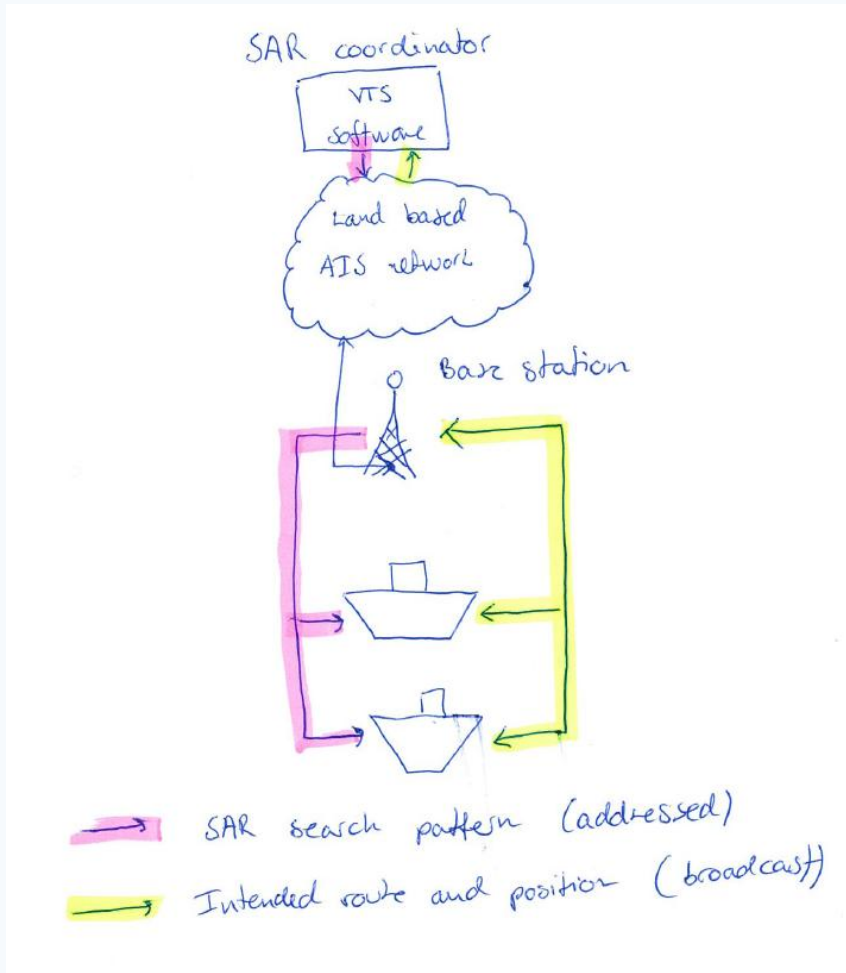 SAR coordinator
VTS
software
Land based
AIS network
Base station
SAR search pattern (addressed)
Intended route and position (broadcast)